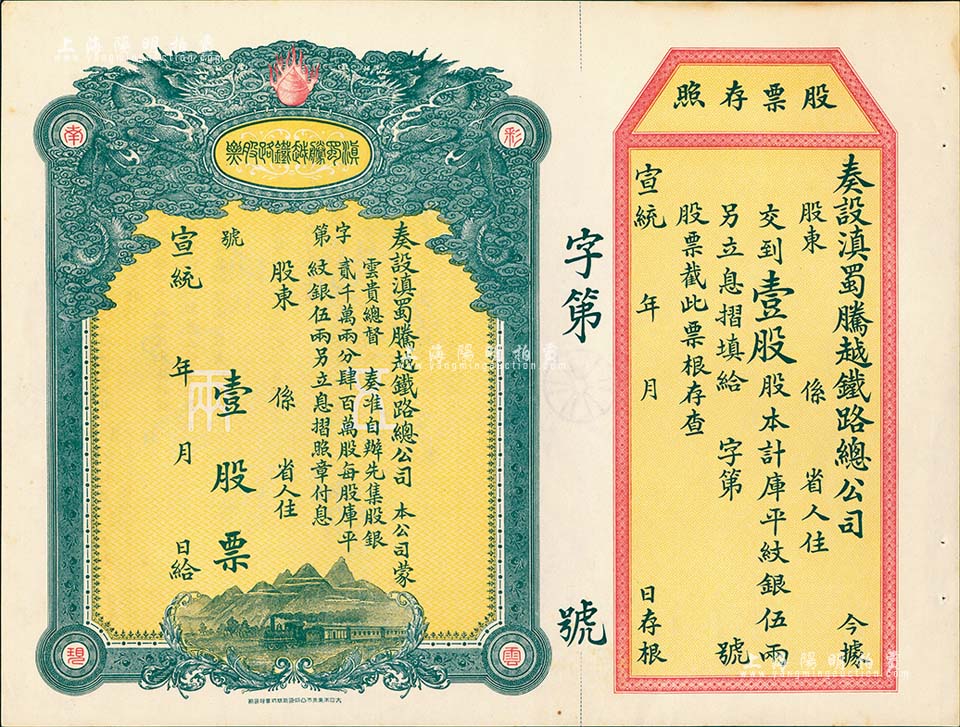 股票存照
奏設滇蜀騰越鐵路總公司 今據
股東 係 省人住
交到壹股股本計庫平紋銀伍兩
另立息摺填給 字第 號
股票截此票根存查
宣統 年 月 日存根
字第 號
滇蜀騰越鐵路股票
彩
雲
南
現
奏設滇蜀騰越鐵路總公司 本公司蒙
雲貴總督 奏准自辦先集股銀
貳千萬兩分肆百萬股每股庫平
紋銀伍兩另立息摺照章付息
字第 號
股東 係 省人住
壹股票
宣統 年 月 日給
伍兩
上海陽明拍賣
www.yangmingauction.com
上海陽明拍賣
www.yangmingauction.com
上海陽明拍賣
www.yangmingauction.com